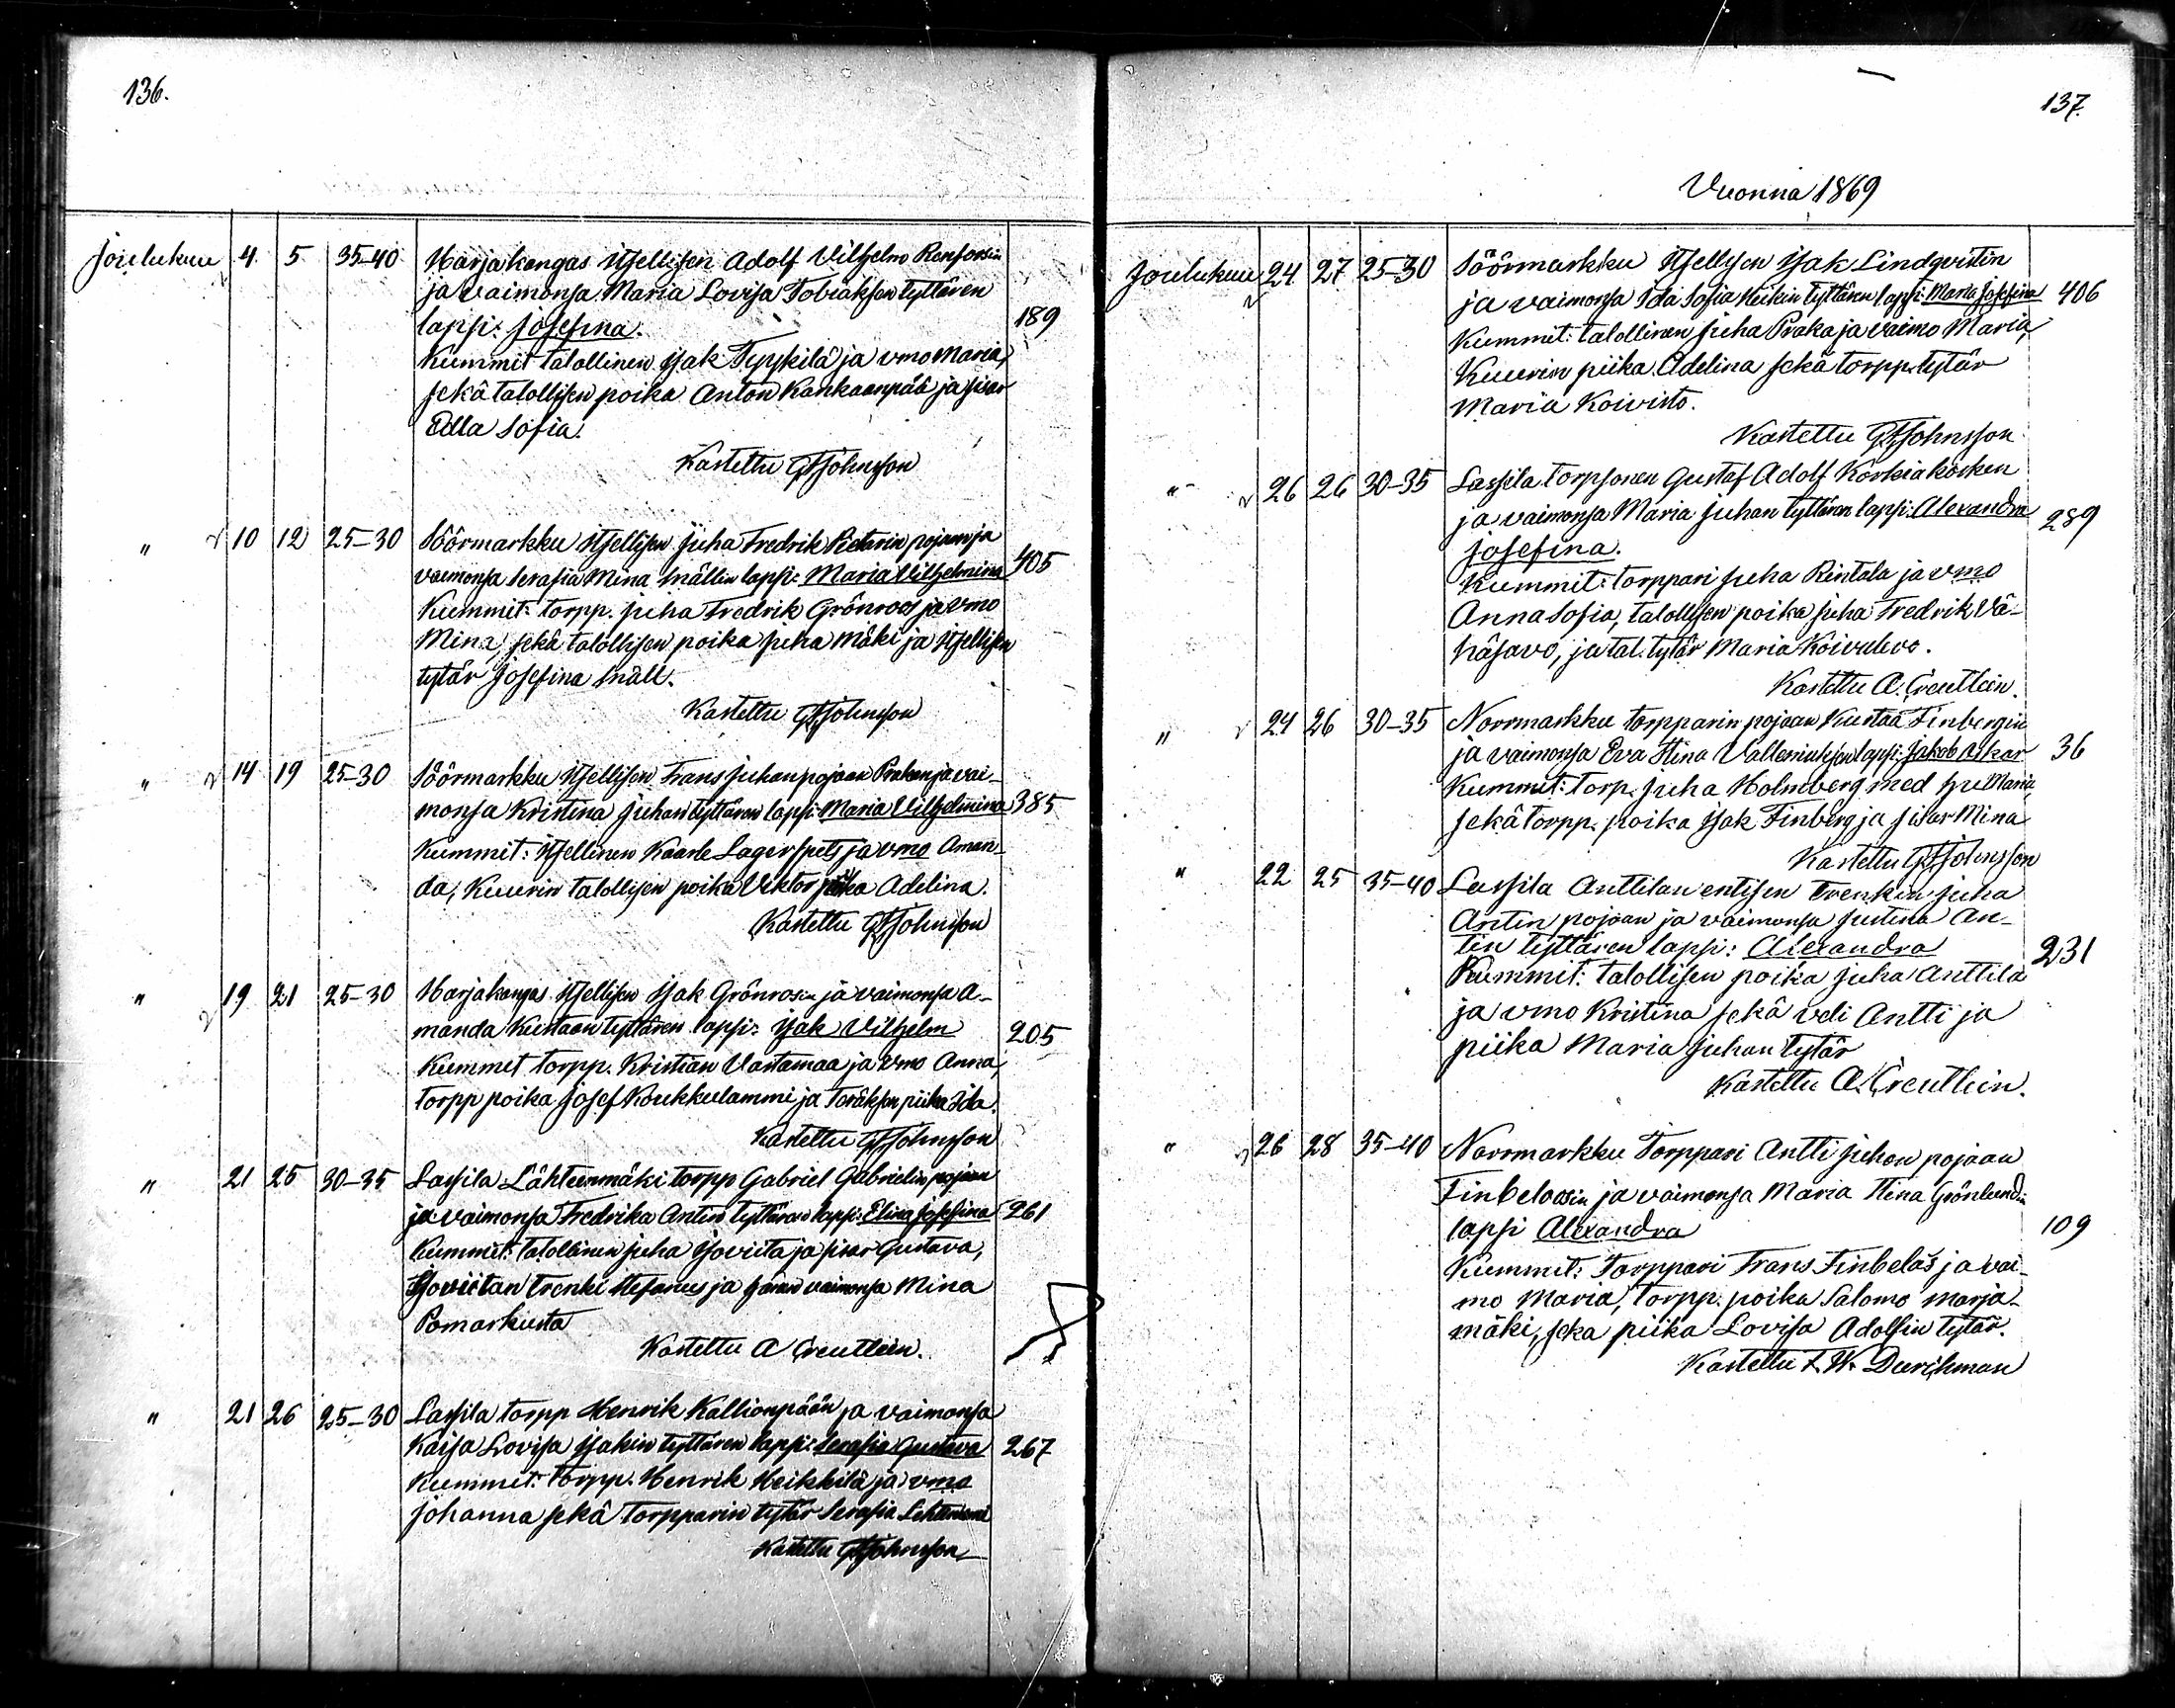 136.
Joulukuu 4 5 35-40 Harjakangas itsellisen Adolf Vilhelm Renforsin
ja vaimonsa Maria Lovisa Tobiaksen tyttären
lapsi: Josefina. 189
Kummit talollinen Isak Tyyskilä ja vmo Maria,
sekä talollisen poika Anton Kankaanpää ja sisar
Edla Sofia.
Kastettu GFJohnsson
" 10 12 25-30 Söörmarkku itsellisen Juha Fredrik Pietarin pojan ja
vaimonsa Serafia Mina Snällin lapsi: Maria Vilhelmina 405
Kummit: torpp. Juha Fredrik Grönroos ja vmo
Mina, sekä talollisen poika Juha Mäki ja itsellisen
tytär Josefina Snäll.
Kastettu GFJohnsson
" 14 19 25-30 Söörmarkku itsellisen Frans Juhan pojaan Prakan ja vai-
monsa Kristina Juhan tyttären lapsi: Maria Vilhelmina 385
Kummit: itsellinen Kaarle Lagerspets ja vmo Aman-
da, Kuurin talollisen poika Viktor piika Adelina.
Kastettu GFJohnsson
" 19 21 25-30 Harjakangas itsellisen Isak Grönrosin ja vaimonsa A-
manda Kustaan tyttären lapsi: Isak Vilhelm 205
Kummit torpp. Kristian Vastamaa ja vmo Anna,
torpp poika Josef Koukkulammi ja piika Ida.
Kastettu GFJohnsson
" 21 25 30-35 Lassila Lähteenmäki torpp Gabriel Gabrielin pojaan
ja vaimonsa Fredrika Antin tyttären lapsi: Elina Josefina 261
Kummit: talollinen Juha Isoviita ja sisar Gustava,
Isoviitan trenki Stefanus ja hänen vaimonsa Mina
Pomarkusta
Kastettu A Creutlein.
" 21 26 25-30 Lassila torpp Henrik Kallionpään ja vaimonsa
Kaisa Lovisa Isakin tyttären lapsi: Serafia Gustava 267
Kummit: Torpp. Henrik Heikkilä ja vmo
Johanna sekä torpparin tytär Serafia
Kastettu GFJohnsson
137.
Vuonna 1869
Joulukuu 24 27 25-30 Söörmarkku itsellisen Isak Lindqvistin
ja vaimonsa Ida Sofia Heikin tyttären lapsi: Maria Josefina 406
Kummit: talollinen Juha Praka ja vaimo Maria,
Kuurin piika Adelina sekä torpp. tytär
Maria Koivisto.
Kastettu GFJohnsson
" 26 26 30-35 Lassila torpparin Gustaf Adolf Körkiakosken
ja vaimonsa Maria Juhan tyttären lapsi: Alexandra 289
Josefina.
Kummit: torppari Juha Rintala ja vmo
Anna Sofia, talollisen poika Juha Fredrik Vä-
häsavo, ja tal. tytär Maria Koivulevo.
Kastettu A. Creutlein.
" 24 26 30-35 Norrmarkku torpparin pojaan Kustaa Finbergin
ja vaimonsa Eva Stina lapsi: Jakob Oskar 36
Kummit: torp. Juha Holmberg med hu Maria,
sekä torpp. poika Isak Finberg ja sisar Mina
Kastettu GFJohnsson
" 22 25 35-40 Lassila Anttilan entisen trenkin Juha
Antin pojaan ja vaimonsa Justina An-
tin tyttären lapsi: Alexandra 231
Kummit: talollisen poika Juha Anttila
ja vmo Kristina sekä veli Antti ja
piika Maria Juhan tytär
Kastettu A. Creutlein.
" 26 28 35-40 Norrmarkku Torppari Antti Juhan pojaan
Finbeloosin ja vaimonsa Maria Stina Grönlundin
lapsi Alexandra 109
Kummit: Torppari Frans Finbelås ja vai-
mo Maria, torpp. poika Salomo Marja-
mäki, seka piika Lovisa Adolfin tytär.
Kastettu F. W. Durchman